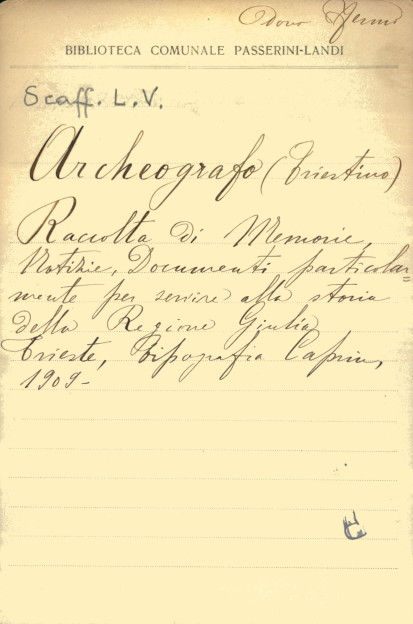 Dono
BIBLIOTECA COMUNALE PASSERINI-LANDI
Scaff. L. V.
Archeografo (Triestino)
Raccolta di Memorie,
Notizie, Documenti particolar=
mente per servire alla storia
della Regione Giulia
Trieste, Tipografia Caprin,
1909-